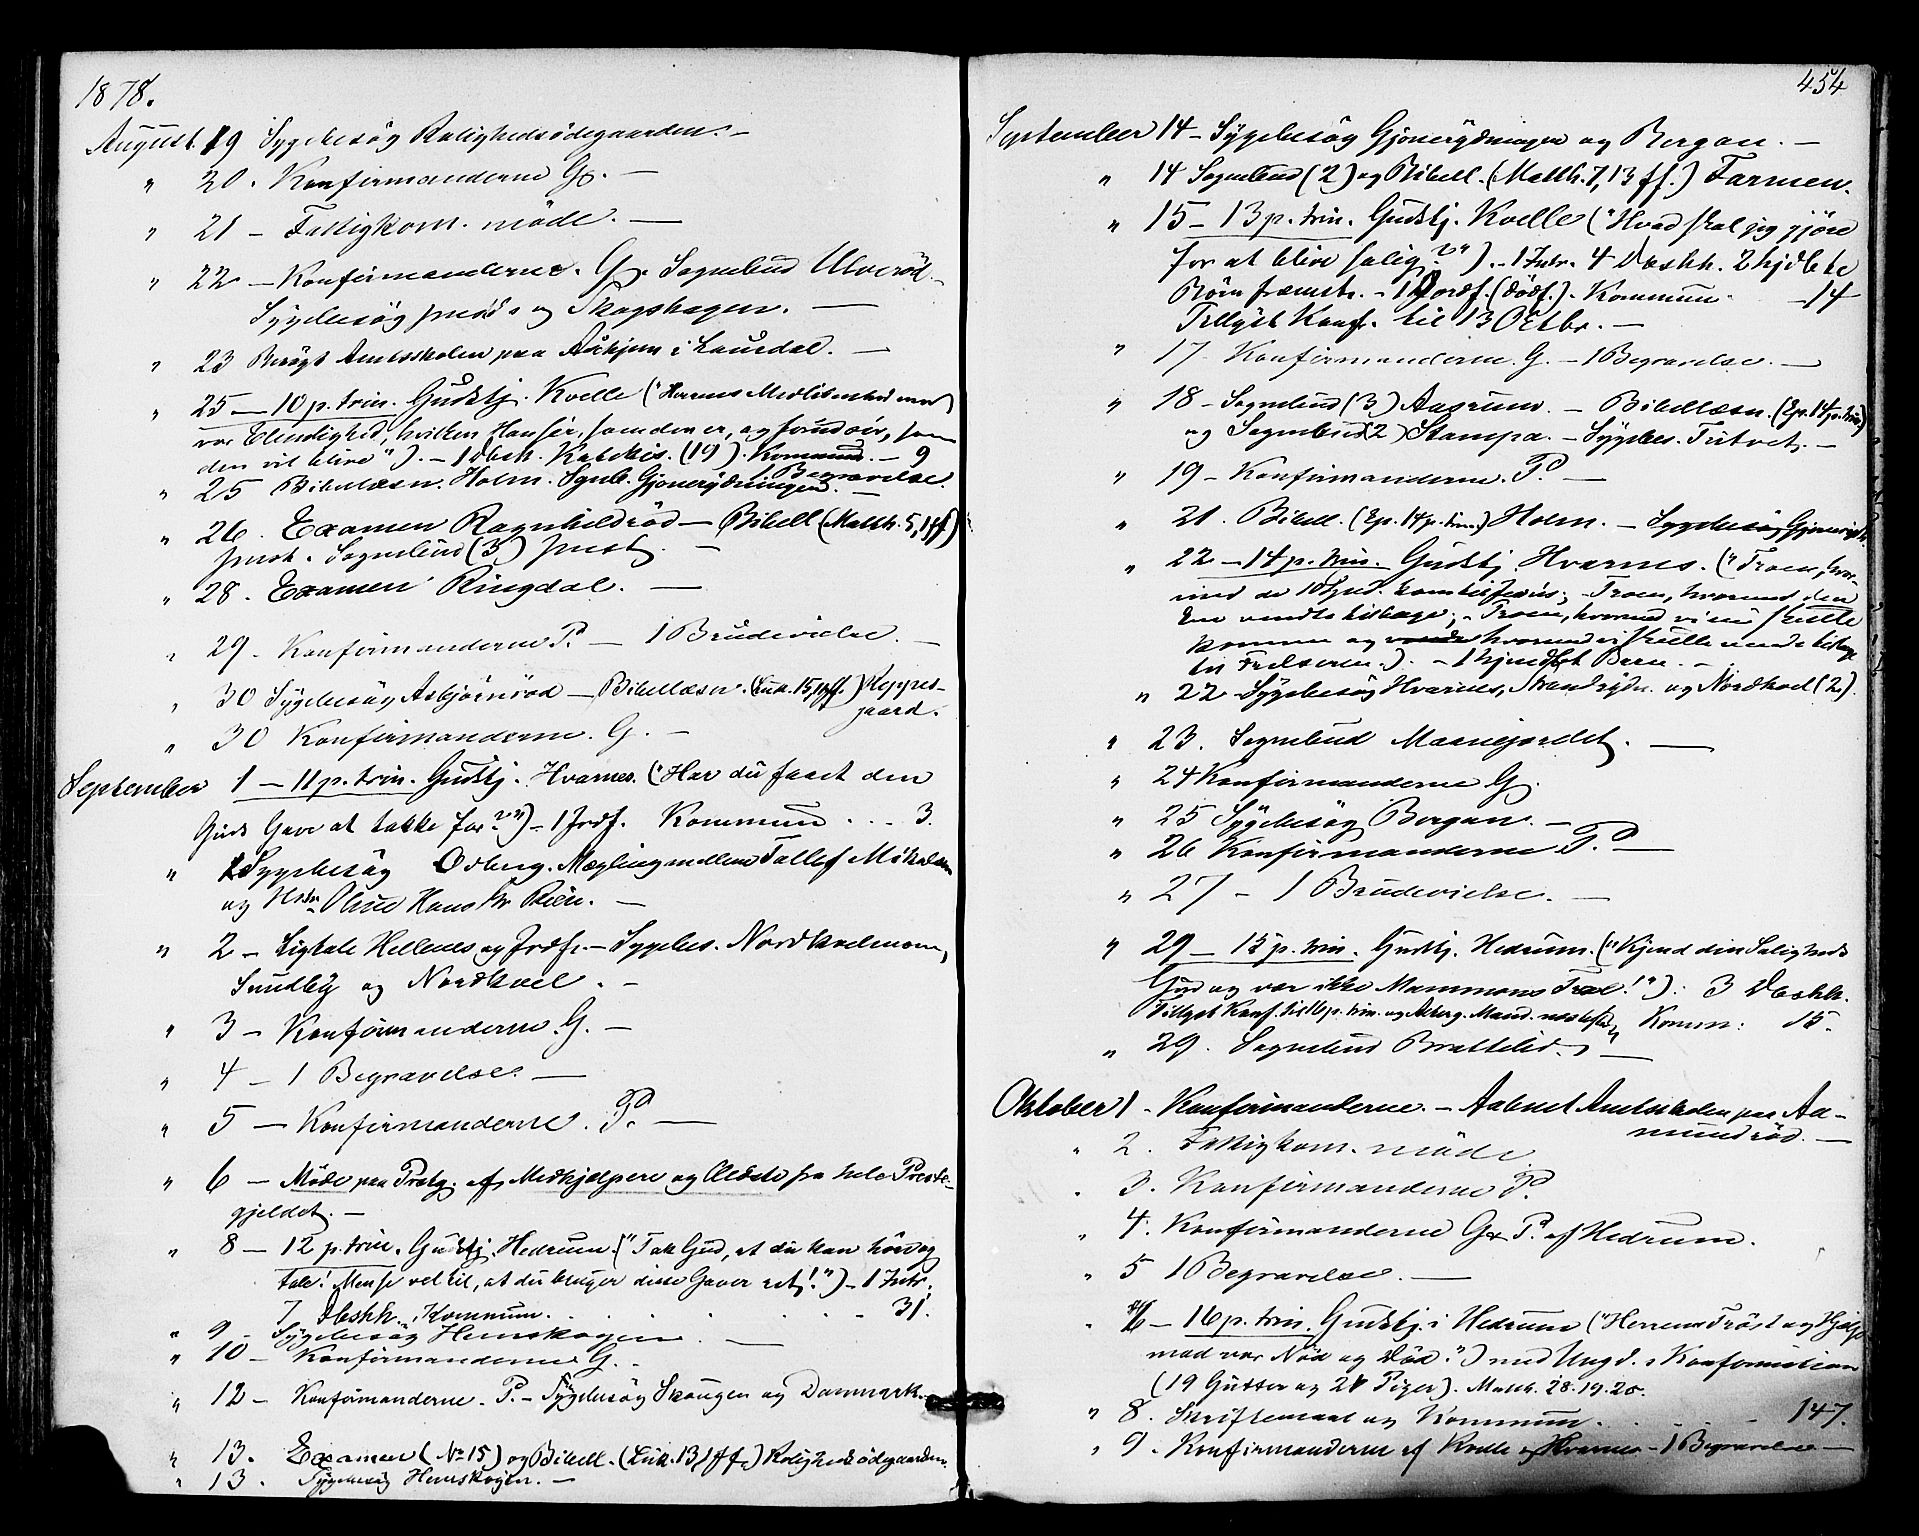 1878.
August. 19 Sygebesøg Roligheds ødegaarden. –
" 20. Konfirmanderne G. –
" 21 – Fattigkom. møde. –
" 22 – Konfirmanderne. G. Sognebud Ulverød –
Sygebesøg og Skogshagen. –
" 23 Besøgt Amtsskolen paa Askjem i Laurdal. –
" 25 – 10 p. trin. Gudstj. Kvelle ("Herrens Medlidenhed med
vor Elendighed, hvilken Han ser, som den er, og forudser, som
den vil blive"). – 1 Dbsh. Katekis. (19). Kommun. – 9
" 25 Bibellæsn. Holm. Sgnb. Gjønerydningen. 1 Begravelse.
" 26. Examen Ragnhildrød – Bibell (Matth. 5, 1 ff)
Sognebud (3) –
" 28. Examen Ringdal. –
" 29. Konfirmanderne P. – 1 Brudevielse. –
" 30 Sygebesøg Asbjørnrød – Bibellæsn. (Luk. 15, 11 ff.) Heppes-
gaard.
" 30 Konfirmanderne. G. –
September 1 – 11 p. trin. Gudstj. Hvarnes. ("Har du faaet den
Guds Gave at takke for?") – 1 Jrdf. Kommun . . . 3.
" Sygebesøg Odberg. Mægling mellem Tallef Mikelsen
og Hstr Oline Hans Kr
" 2 – Ligtale Hellenes og Jrdf. – Sygebes. Nordkvelmoen,
Sundby og Nordkvel. –
" 3 – Konfirmanderne. G. –
" 4 – 1 Begravelse. –
" 5 – Konfirmanderne. P. –
" 6 – Møde paa Prstg. af Medhjelpere og Ældste fra hele Preste-
gjeldet. –
" 8 – 12 p. trin. Gudstj. Hedrum. ("Tak Gud, at du kan høre og
tale! Men se vel til, at du bruger disse Gaver ret!") – 1 Intr.
7 Dbshh. Kommun. . . . . . – 31.
" 9 – Sygebesøg Hemskogen –
" 10 – Konfirmanderne G. –
" 12 – Konfirmanderne. P. – Sygebesøg Skougen og Danmark.
" 13. Examen (No 15) og Bibell. (Luk. 13, 1 ff.) Roligheds ødegaarden.
" 13. Sygebesøg Hemskogen. –
454
September 14 – Sygebesøg Gjønerydningen og Bergan. –
" 14 Sognebud (2) og Bibell. (Matth. 7, 13 ff.) Farmen.
" 15 – 13 p. trin. Gudstj. Kvelle ("Hvad skal jeg gjøre
for at blive salig?"). – 1 Intr. 4 Dbshh. 2 hjdbte
Børn fremst. – 1 Jordf. (dødf.). Kommun. – 14
Tillyst Konf. til 13 Octbr. –
" 17. Konfirmanderne. G. – 1 Begravelse. –
" 18 – Sognebud (3) Aasrum. – Bibellæsn. (Ep. 14 p. trin)
og Sognebud (2) Stampa. – Sygebes. Tutvet. –
" 19 – Konfirmanderne. P. –
" 21. Bibell. (Ep. 14 p. trin.) Holm. – Sygebesøg
" 22 – 14 p. trin. Gudstj. Hvarnes. ("Troen, hvor-
med de 10 Spd. kom til Jesus; – Troen, hvormed den
Ene vendte tilbage; – Troen, hvormed vi nu skulle
komme og hvormed vi skulle vende tilbage
til Frelseren.). – 1 hjmdbt Barn. –
" 22 Sygebesøg Hvarnes, Strandrydn. og Nordkvel (2).
" 23. Sognebud Maanejordet. –
" 24 Konfirmanderne G.
" 25 Sygebesøg Bergan. –
" 26 Konfirmanderne P. –
" 27 – 1 Brudevielse. –
" 29 – 15 p. trin. Gudstj. Hedrum. ("Kjend din Saligheds
Gud og vær ikke Mammons Træl!"). 3 Dbshh.
Tillyst Konf. til 16 p. trin. og Komm: 15.
" 29. Sognebud Bratteli. –
Oktober 1. Konfirmanderne. – Aabnet Amtsskolen paa Aa-
mundrød. –
" 2. Fattigkom. møde.
" 3. Konfirmanderne P.
" 4. Konfirmanderne G & P. af Hedrum.
" 5 1 Begravelse. –
" 6 – 16 p. trin. Gudstj. i Hedrum ("Herrens Trøst og Hjælp
mod vor Nød og Død.") med Ungd. s Konfirmation
(19 Gutter og 21 Piger). Matth. 28. 19. 20.
" 8. Skriftemaal og Kommun. . . . . – 147.
" 9. Konfirmanderne af Kvelle og Hvarnes – 1 Begravelse –